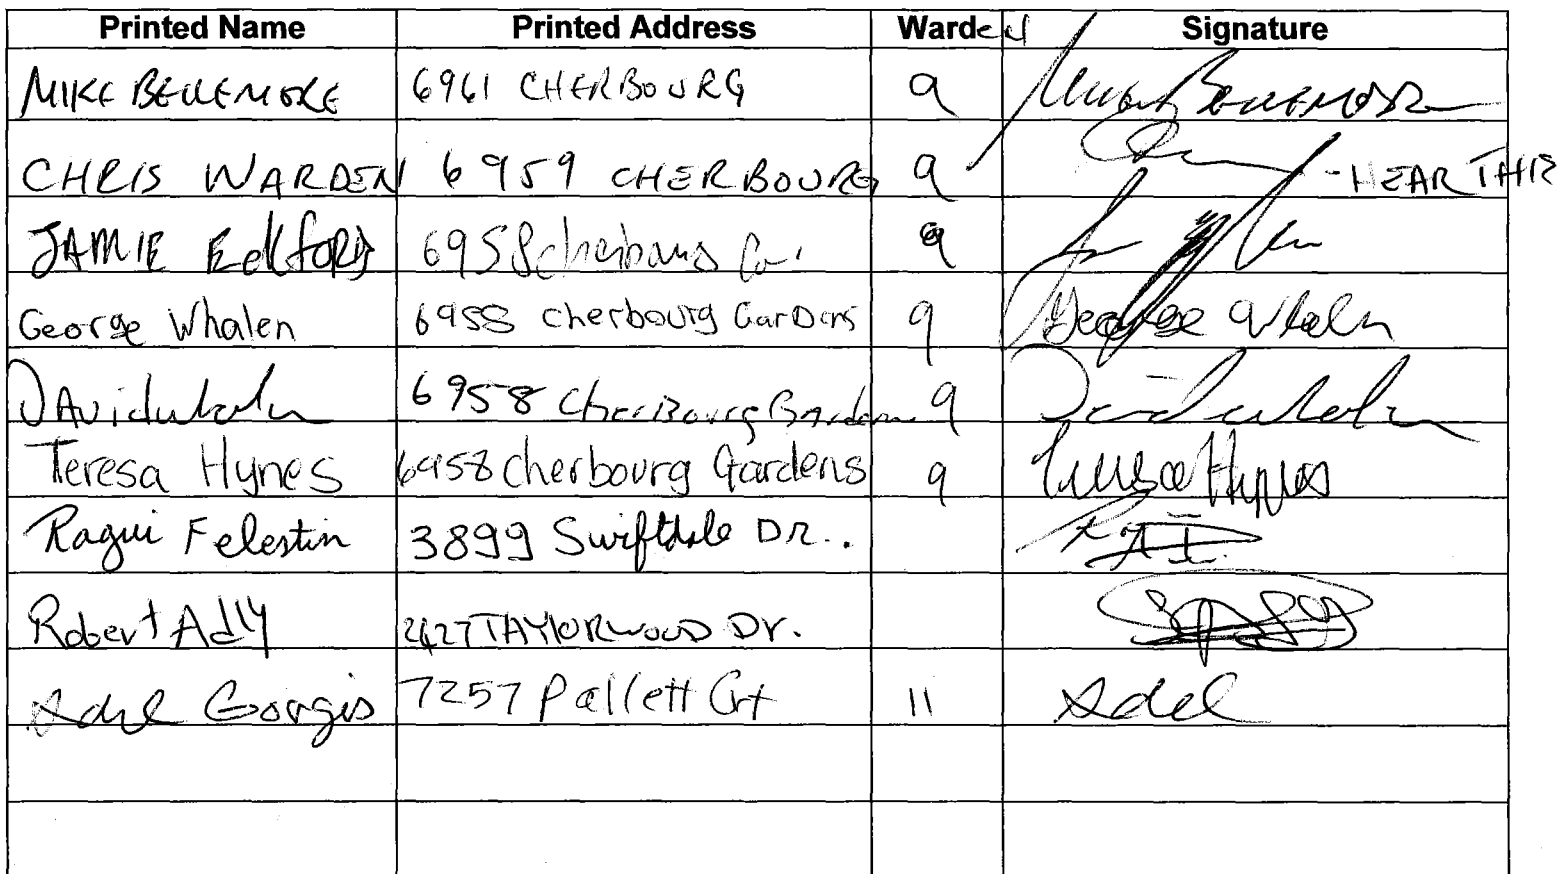 Printed Name Printed Address Warden Signature
MIKE BELLEMORE 6961 CHERBOURG 9 BELLEMORE
CHRIS WARDEN 6959 CHERBOURG 9 - HEAR THIS
JAMIE 6958 9
George Whalen 6958 Cherbourg GarDens 9 George Whalen
DAvid Whalen 6958 CherBourg Garden 9 David Whalen
Teresa Hynes 6958 Cherbourg Gardens 9 Teresa Hynes
Ragui Felestin 3899 Swiftdale DR..
Robert Adly 2427 TAYLORWOOD Dr.
Adel Gorgis 7257 Pallett Crt 11 Adel